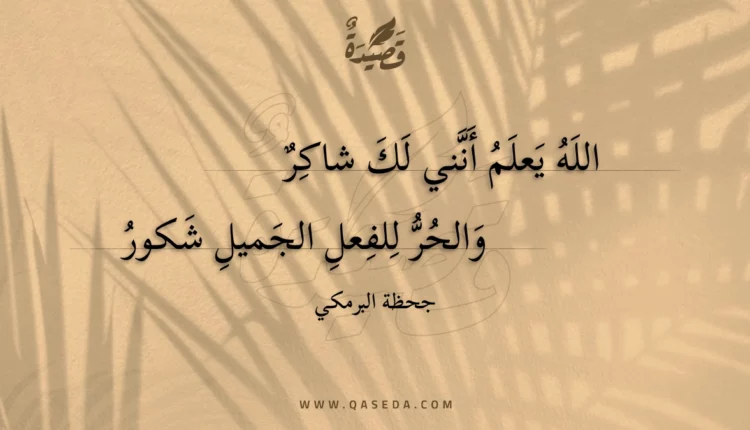 قَصِيْدَةٌ
اللَهُ يَعلَمُ أَنَّني لَكَ شاكِرٌ
وَالحُرُّ لِلفِعلِ الجَميلِ شَكورُ
جحظة البرمكي
WWW.QASEDA.COM